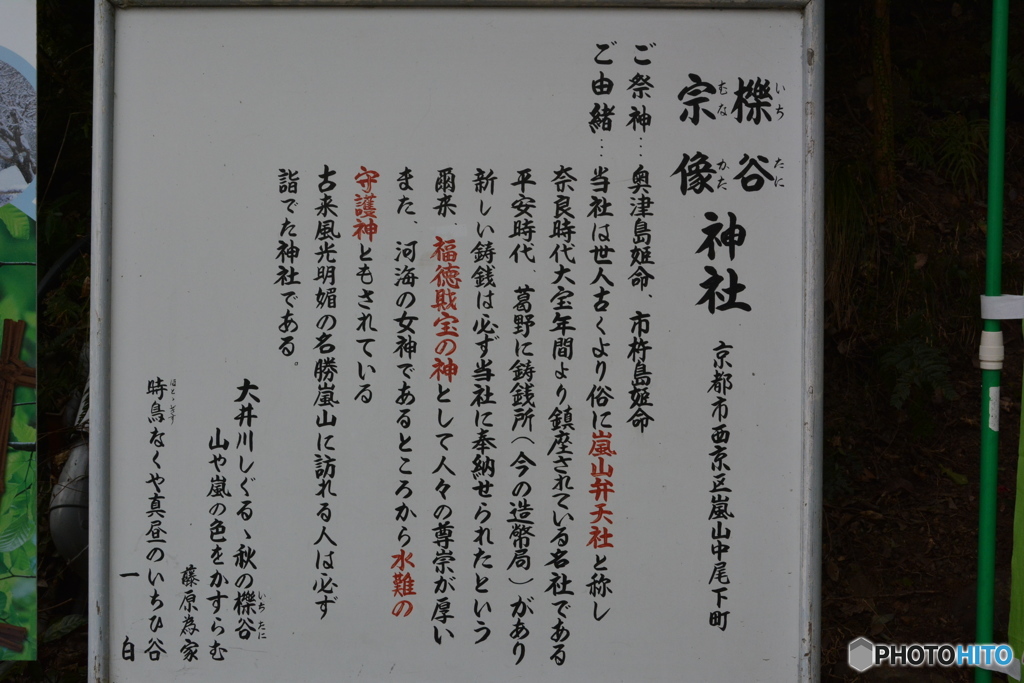 櫟谷
いちたに
宗像
むなかた
神社
京都市西京区嵐山中尾下町
ご祭神…奥津島姫命、市杵島姫命
ご由緒…当社は世人古くより俗に嵐山弁天社と称し
奈良時代大宝年間より鎮座されている名社である
平安時代、葛野に鋳銭所(今の造幣局)があり
新しい鋳銭は必ず当社に奉納せられたという
爾来、福徳財宝の神として人々の尊崇が厚い
また、河海の女神であるところから水難の
守護神ともされている
古来風光明媚の名勝嵐山に訪れる人は必ず
詣でた神社である。
大井川しぐるゝ秋の櫟谷
いちたに
山や嵐の色をかすらむ
藤原為家
時鳥なくや真昼のいちひ谷
ほとゝぎす
一白
PHOTOHITO